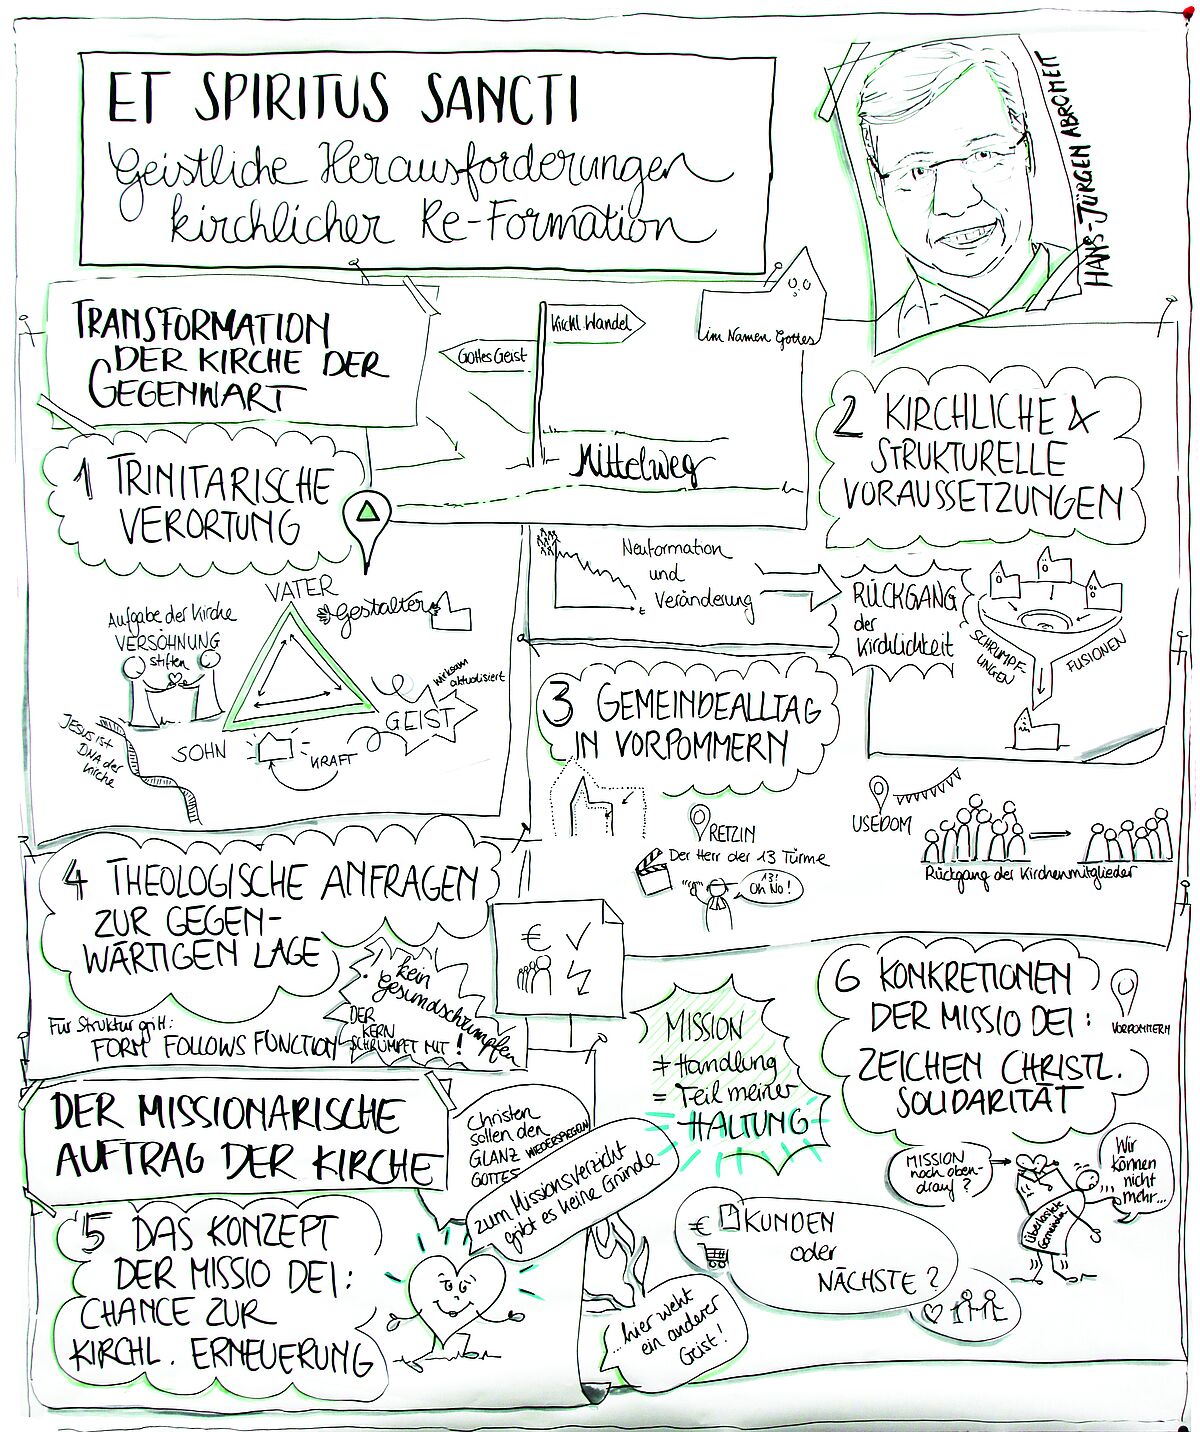 ET SPIRITUS SANCTI
Geistliche Herausforderungen
kirchlicher Re-Formation
HANS-JÜRGEN ABROMEIT
TRANSFORMATION
DER KIRCHE DER
GEGENWART
Kirchl. Wandel
Gottes Geist
im Namen Gottes
Mittelweg
1 TRINITARISCHE
VERORTUNG
VATER
Gestalter
Aufgabe der Kirche
VERSÖHNUNG
stiften
wirksam
aktualisiert
GEIST
SOHN
KRAFT
JESUS ist
DNA der
Kirche
2 KIRCHLICHE &
STRUKTURELLE
VORAUSSETZUNGEN
Neuformation
und
Veränderung
t
RÜCKGANG
der
Kirchlichkeit
SCHRUMPF-
UNGEN
FUSIONEN
3 GEMEINDEALLTAG
IN VORPOMMERN
RETZIN
Der Herr der 13 Türme
13!
Oh No!
USEDOM
Rückgang der Kirchenmitglieder
4 THEOLOGISCHE ANFRAGEN
ZUR GEGEN-
WÄRTIGEN LAGE
€
kein
Gesundschrumpfen
DER
KERN
SCHRUMPFT MIT!
Für Struktur gilt:
FORM FOLLOWS FUNCTION
DER MISSIONARISCHE
AUFTRAG DER KIRCHE
Christen
sollen den
GLANZ WIEDERSPIEGELN
GOTTES
zum Missionsverzicht
gibt es keine Gründe
5 DAS KONZEPT
DER MISSIO DEI:
CHANCE ZUR
KIRCHL. ERNEUERUNG
...hier weht
ein anderer
Geist!
MISSION
≠ Handlung
= Teil meiner
HALTUNG
6 KONKRETIONEN
DER MISSIO DEI:
ZEICHEN CHRISTL.
SOLIDARITÄT
VORPOMMERN
MISSION
noch oben-
drauf?
Überlastete
Gemeinden
Wir
können
nicht
mehr...
€ KUNDEN
oder
NÄCHSTE?